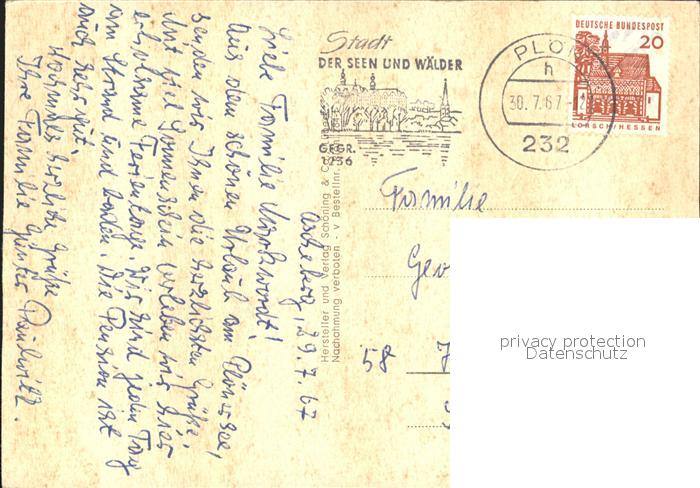 Ascheberg, 29.7.67
Liebe Familie
Aus dem schönen Urlaub am Plönersee,
senden wir Ihnen die herzlichsten Grüße.
Mit viel Sonnenschein verleben wir hier
erholsame Ferientage. Wir sind jeden Tag
am Strand und baden. Die Pension ist
auch sehr gut.
Nochmals herzliche Grüße
Ihre Familie Günter
Hersteller und Verlag Schöning & C
Nachahmung verboten - v Bestellnr.
Stadt
DER SEEN UND WÄLDER
GEGR.
1236
PLÖN
h
30.7.67-
232
DEUTSCHE BUNDESPOST
20
LORSCH/HESSEN
Familie
Geo
58
privacy protection
Datenschutz